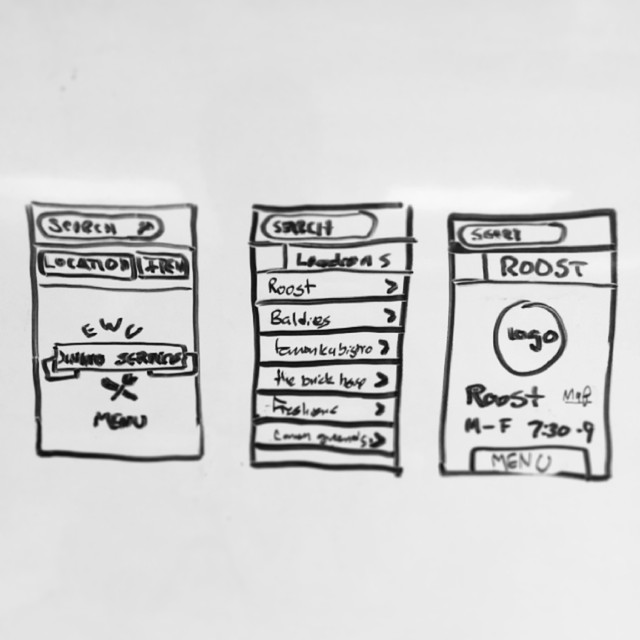 SEARCH
LOCATION ITEM
EWU
DINING SERVICES
MENU
SEARCH
Locations
Roost
Baldies
the brick house
SEARCH
ROOST
logo
Roost Map
M-F 7:30-9
MENU